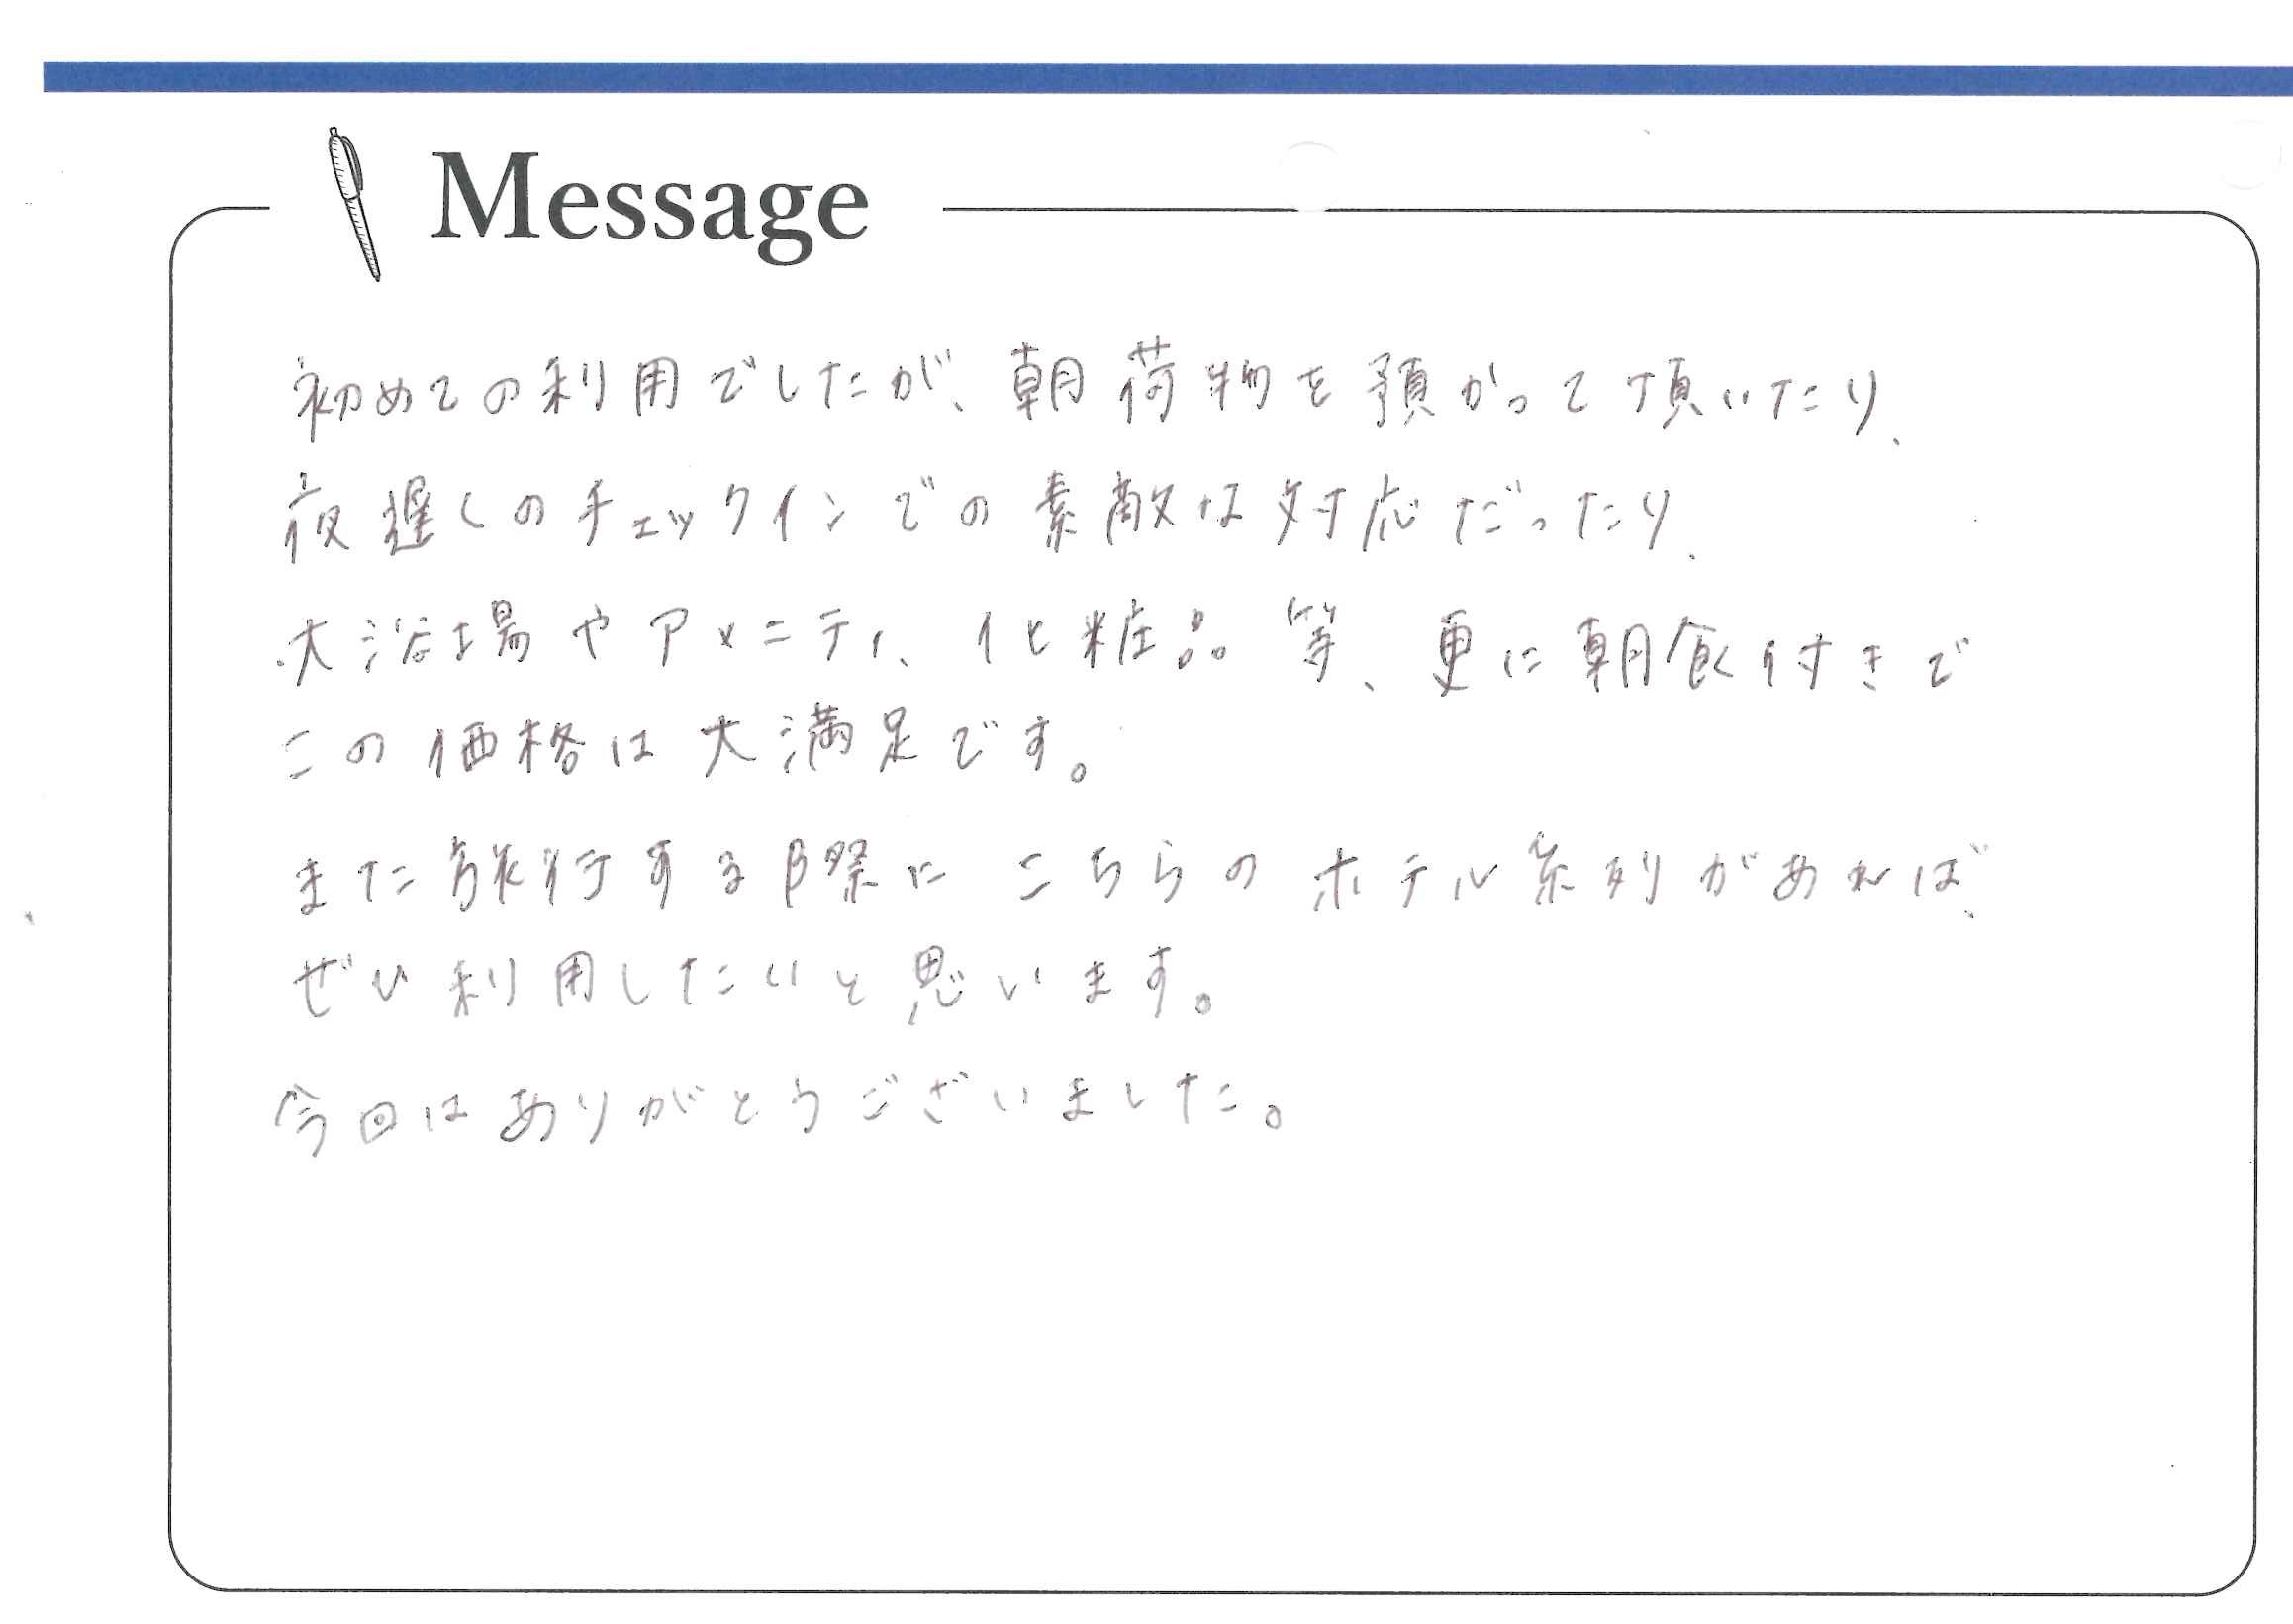 Message
初めての利用でしたが、朝荷物を預かって頂いたり、
夜遅くのチェックインでの素敵な対応だったり、
大浴場やアメニティ、化粧品等、更に朝食付きで
この価格は大満足です。
また旅行する際に こちらのホテル系列があれば、
ぜひ利用したいと思います。
今回はありがとうございました。